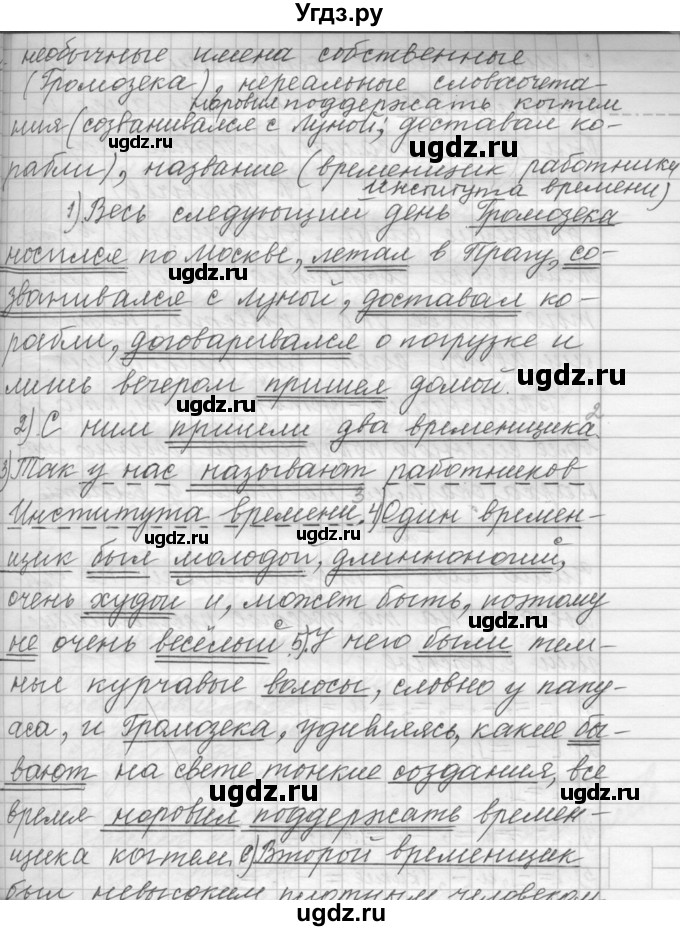 Угдз.ру
необычные имена собственные
(Громозека), нереальные словосочета-
норовил поддержать когтем
ния (созванивался с Луной; доставал ко-
рабли), название (временщик работнику
института времени)
1) Весь следующий день Громозека
носился по Москве, летал в Прагу, со-
званивался с Луной, доставал ко-
рабли, договаривался о погрузке и
лишь вечером пришел домой.
2) С ним пришли два временщика. 2
3) Так у нас называют работников
Института времени. 3 4) Один времен-
щик был молодой, длинноногий,
очень худой и, может быть, поэтому
не очень весёлый. 5) У него были тем-
ные курчавые волосы, словно у папу-
аса, и Громозека, удивляясь, какие бы-
вают на свете тонкие создания, все
время норовил поддержать времен-
щика когтем. 6) Второй временщик
был невысоким плотным человеком
ugdz.ru
ugdz.ru
ugdz.ru
ugdz.ru
ugdz.ru
ugdz.ru
ugdz.ru
ugdz.ru
ugdz.ru
ugdz.ru
ugdz.ru
ugdz.ru
ugdz.ru